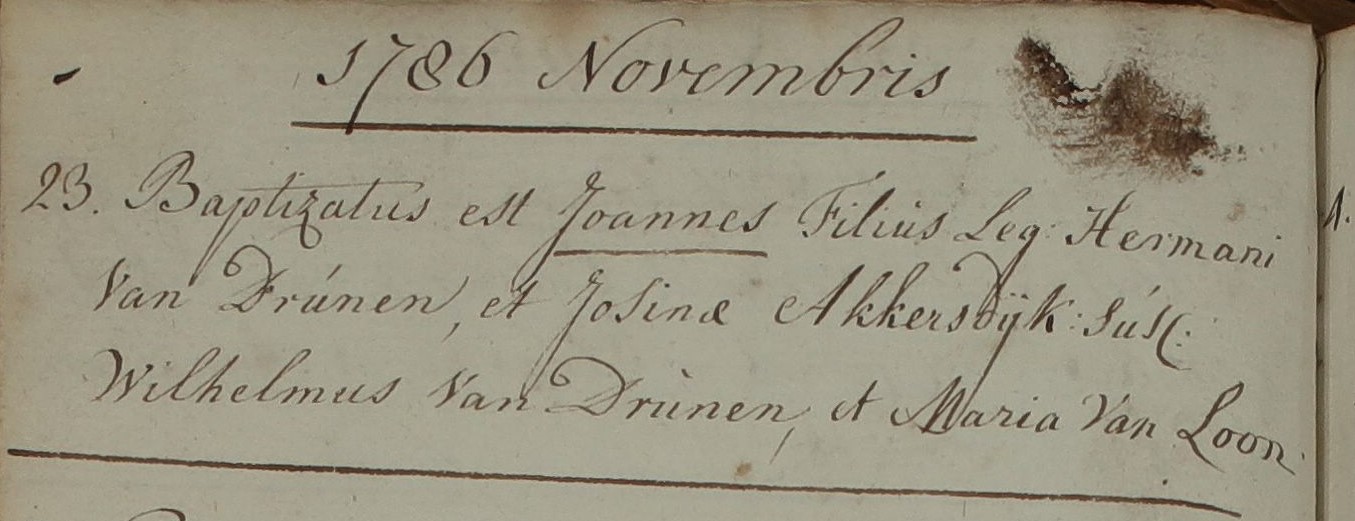 1786 Novembris
23. Baptizatus est Joannes Filius Leg: Hermani
Van Drúnen, et Josinæ Akkersdÿk: Súsc:
Wilhelmus Van Drúnen, et Maria Van Loon.
1.